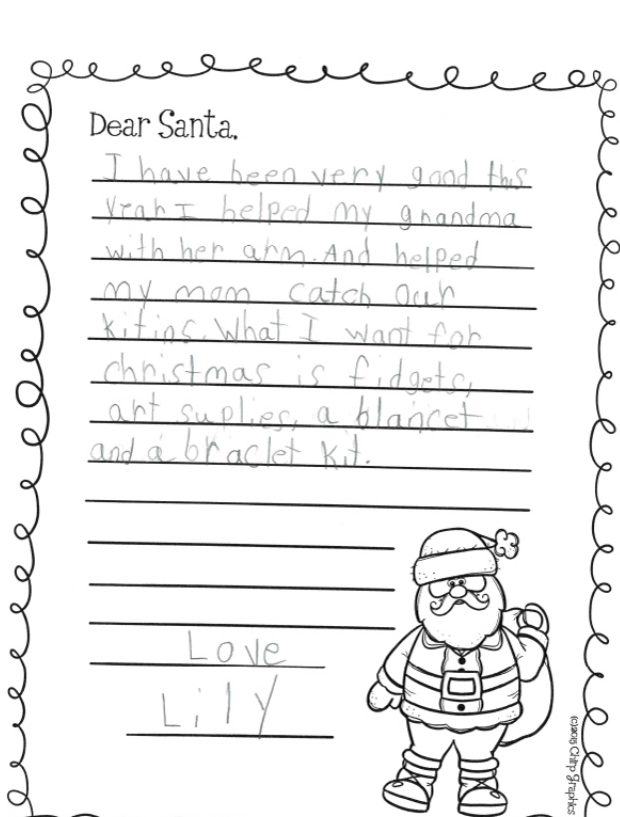 Dear Santa,
I have been very good this
year I helped my grandma
with her arm. And helped
my mom catch our
kitins. What I want for
christmas is fidgets,
art suplies, a blancet
and a braclet kit.
Love
Lily
(c)2015 Chirp Graphics